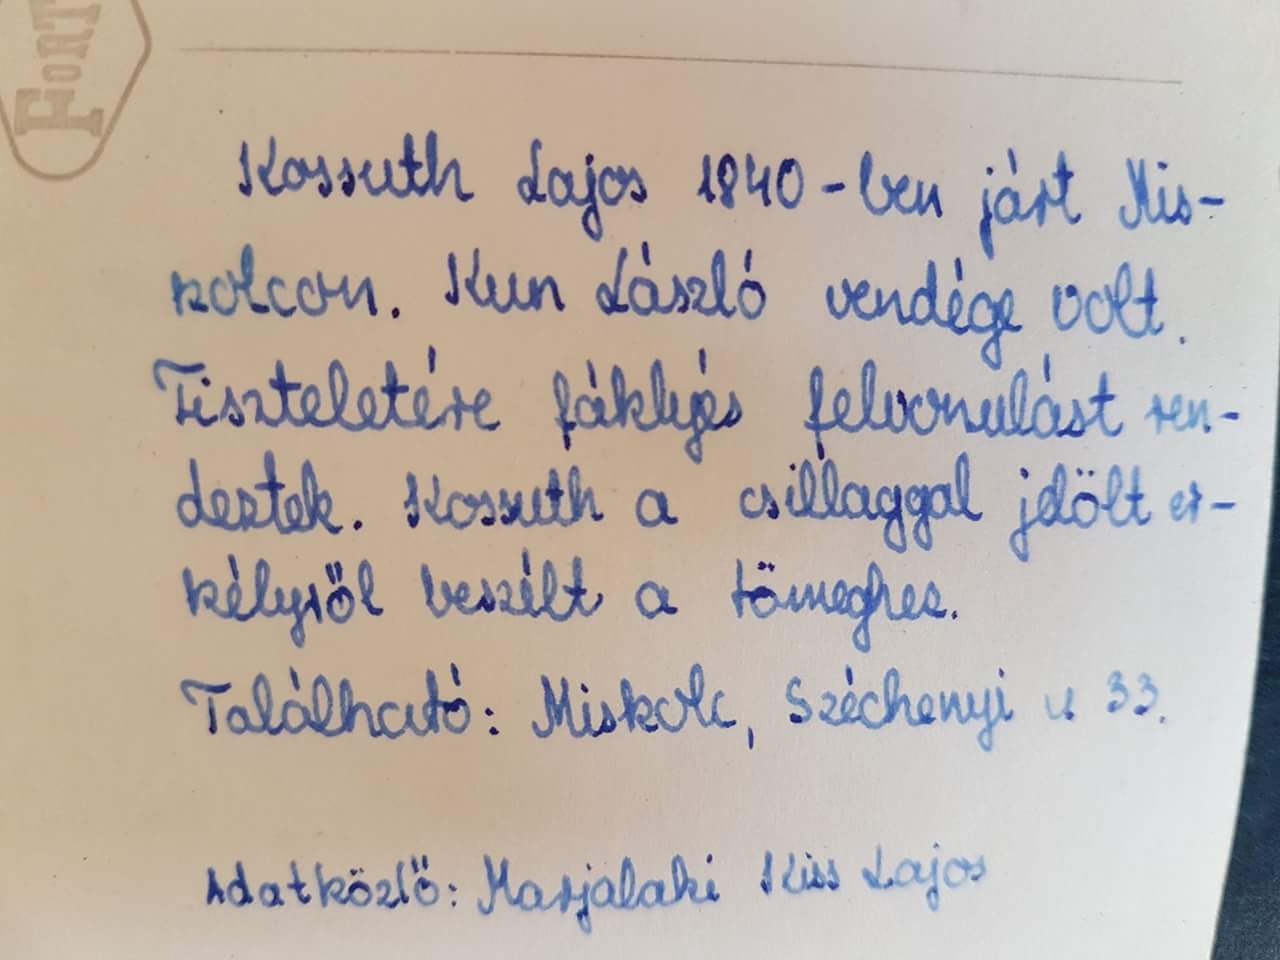 FORT
Kossuth Lajos 1840-ben járt Mis-
kolcon. Kun László vendége volt.
Tiszteletére fáklyás felvonulást ren-
deztek. Kossuth a csillaggal jelölt er-
kélyről beszélt a tömeghez.
Található: Miskolc, Széchenyi u 33.
Adatközlő: Marjalaki Kiss Lajos